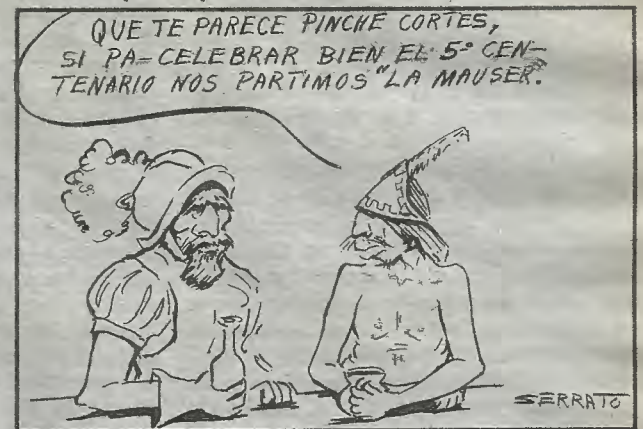 QUE TE PARECE PINCHE CORTES,
SI PA-CELEBRAR BIEN EL 5º CEN-
TENARIO NOS PARTIMOS "LA MAUSER."
SERRATO